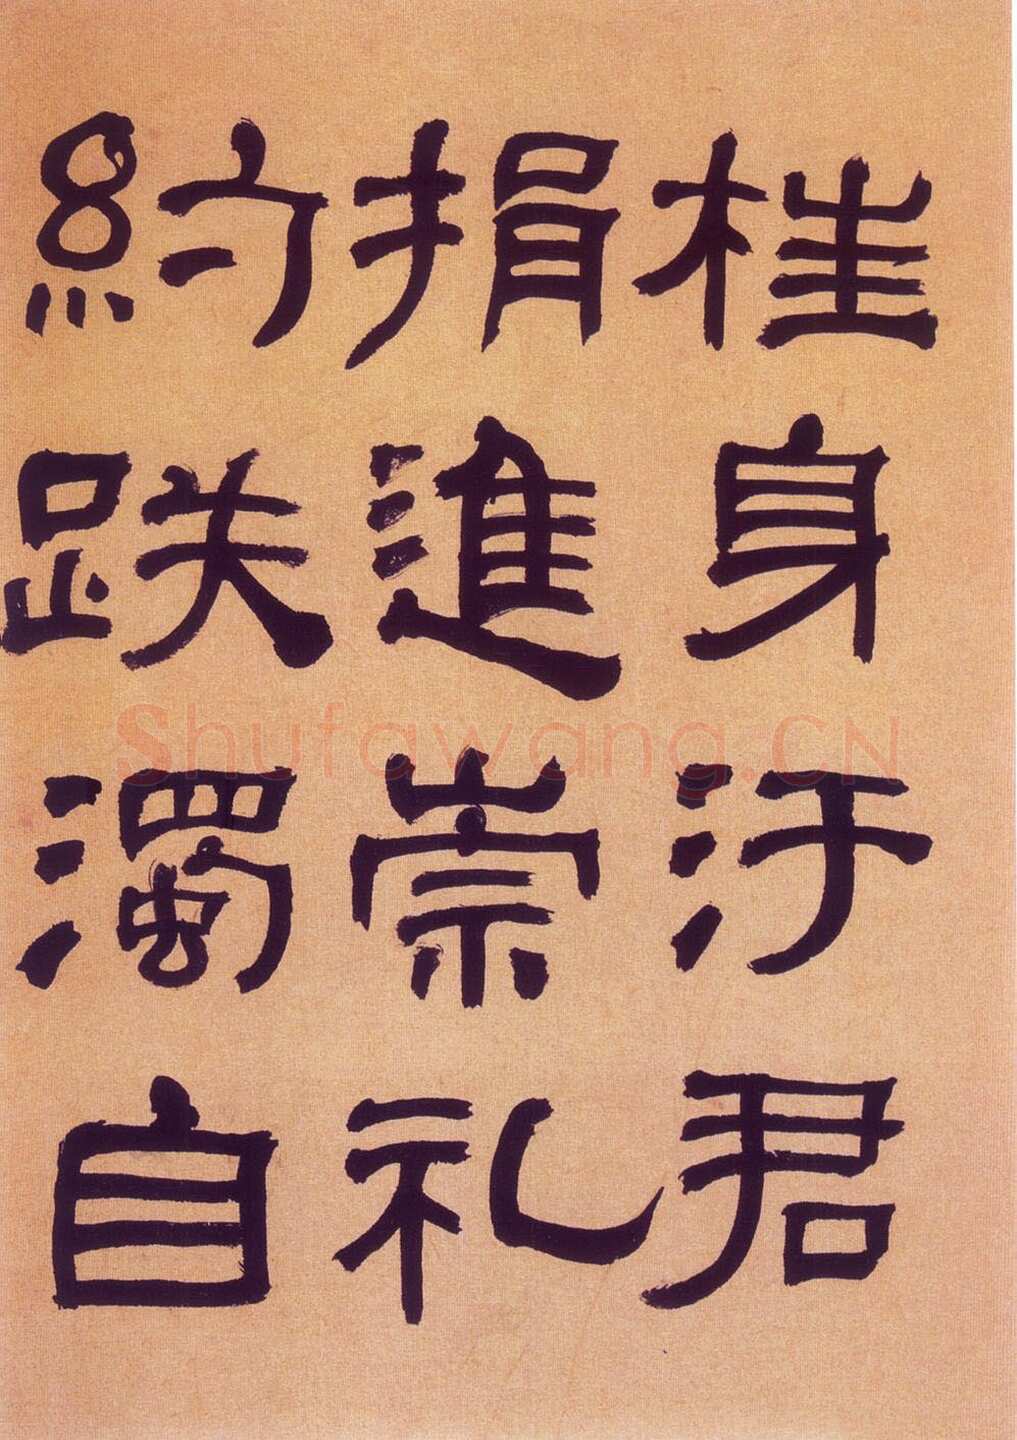 桂身汙君
捐進崇礼
約跌濁自
Shufawang.CN